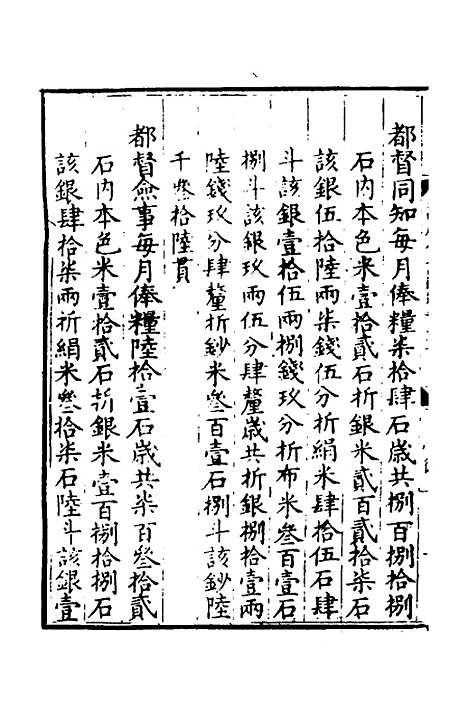 都督同知每月俸糧柒拾肆石歲共捌百捌拾捌
石內本色米壹拾貳石折銀米貳百貳拾柒石
該銀伍拾陸兩柒錢伍分折絹米肆拾伍石肆
斗該銀壹拾伍兩捌錢玖分折布米叄百壹石
捌斗該銀玖兩伍分肆釐歲共折銀捌拾壹兩
陸錢玖分肆釐折鈔米叄百壹石捌斗該鈔陸
千叄拾陸貫
都督僉事每月俸糧陸拾壹石歲共柒百叄拾貳
石內本色米壹拾貳石折銀米壹百捌拾捌石
該銀肆拾柒兩折絹米叄拾柒石陸斗該銀壹